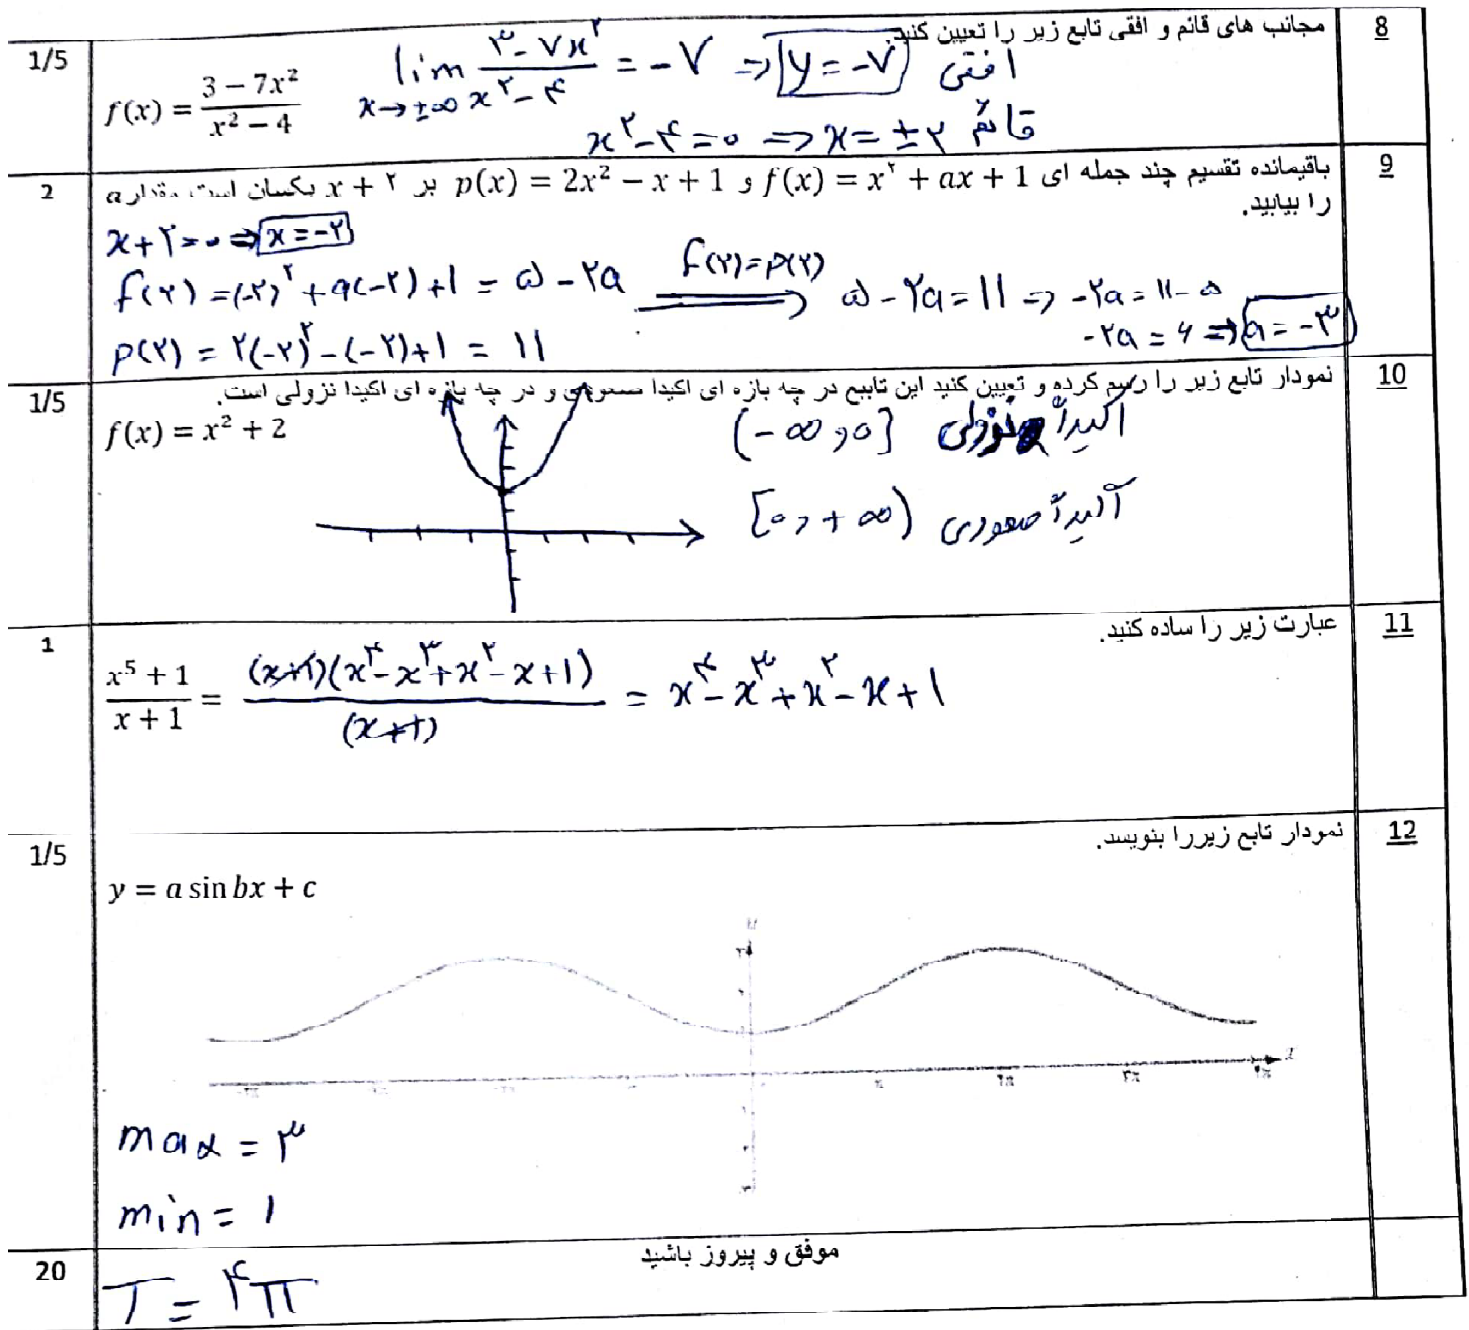 8
مجانب های قائم و افقی تابع زیر را تعیین کنید.
1/5
f(x) = (3 − 7x²)/(x² − 4)
lim x→±∞ (۳ − ۷x²)/(x² − ۴) = −۷ ⇒ y = −۷ افقی
x² − ۴ = ۰ ⇒ x = ±۲ قائم
9
باقیمانده تقسیم چند جمله ای f(x) = x² + ax + 1 و p(x) = 2x² − x + 1 بر x + ۲ یکسان است مقدار a
را بیابید.
2
x + ۲ = ۰ ⇒ x = −۲
f(۲) = (−۲)² + a(−۲) + ۱ = ۵ − ۲a
f(۲) = p(۲)
۵ − ۲a = ۱۱ ⇒ −۲a = ۱۱ − ۵
−۲a = ۶ ⇒ a = −۳
p(۲) = ۲(−۲)² − (−۲) + ۱ = ۱۱
10
نمودار تابع زیر را رسم کرده و تعیین کنید این تابع در چه بازه ای اکیدا صعودی و در چه بازه ای اکیدا نزولی است.
1/5
f(x) = x² + 2
(−∞ , ۰] اکیداً نزولی
[۰ , +∞) اکیداً صعودی
11
عبارت زیر را ساده کنید.
1
(x⁵ + 1)/(x + 1) = (x+۱)(x⁴ − x³ + x² − x + ۱)/(x+۱) = x⁴ − x³ + x² − x + ۱
12
نمودار تابع زیررا بنویسد.
1/5
y = a sin bx + c
max = ۳
min = ۱
موفق و پیروز باشید
20
T = ۴π